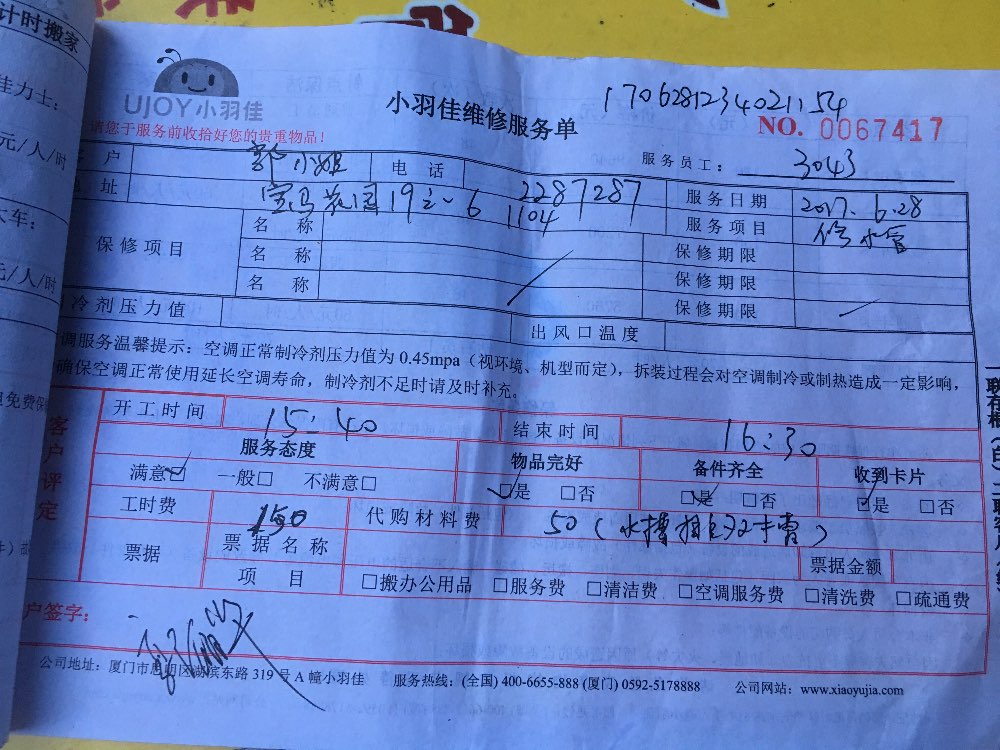 计时搬家
佳力士:
元/人/时
大车:
元/人/时
UJOY小羽佳
请您于服务前收拾好您的贵重物品!
小羽佳维修服务单
1706281234021154
NO. 0067417
服务员工: 3043
户 郭小姐 电 话 2287287
址 宝马花园19之-6 1104
服务日期 2017.6.28
服务项目 修水管
保修项目
名 称 保修期限
名 称 保修期限
名 称 保修期限
冷剂压力值 出风口温度
调服务温馨提示: 空调正常制冷剂压力值为 0.45mpa (视环境、机型而定), 拆装过程会对空调制冷或制热造成一定影响,
确保空调正常使用延长空调寿命, 制冷剂不足时请及时补充。
客户评定
开工时间 15:40 结束时间 16:30
服务态度 物品完好 备件齐全 收到卡片
满意☑ 一般□ 不满意□ ☑是 □否 ☑是 □否 ☑是 □否
工时费 150 代购材料费 50
票据 票据名称 票据金额
项 目 □搬办公用品 □服务费 □清洁费 □空调服务费 □清洗费 □疏通费
户签字:
公司地址: 厦门市思明区湖滨东路 319 号 A 幢小羽佳 服务热线: (全国) 400-6655-888 (厦门) 0592-5178888 公司网站: www.xiaoyujia.com